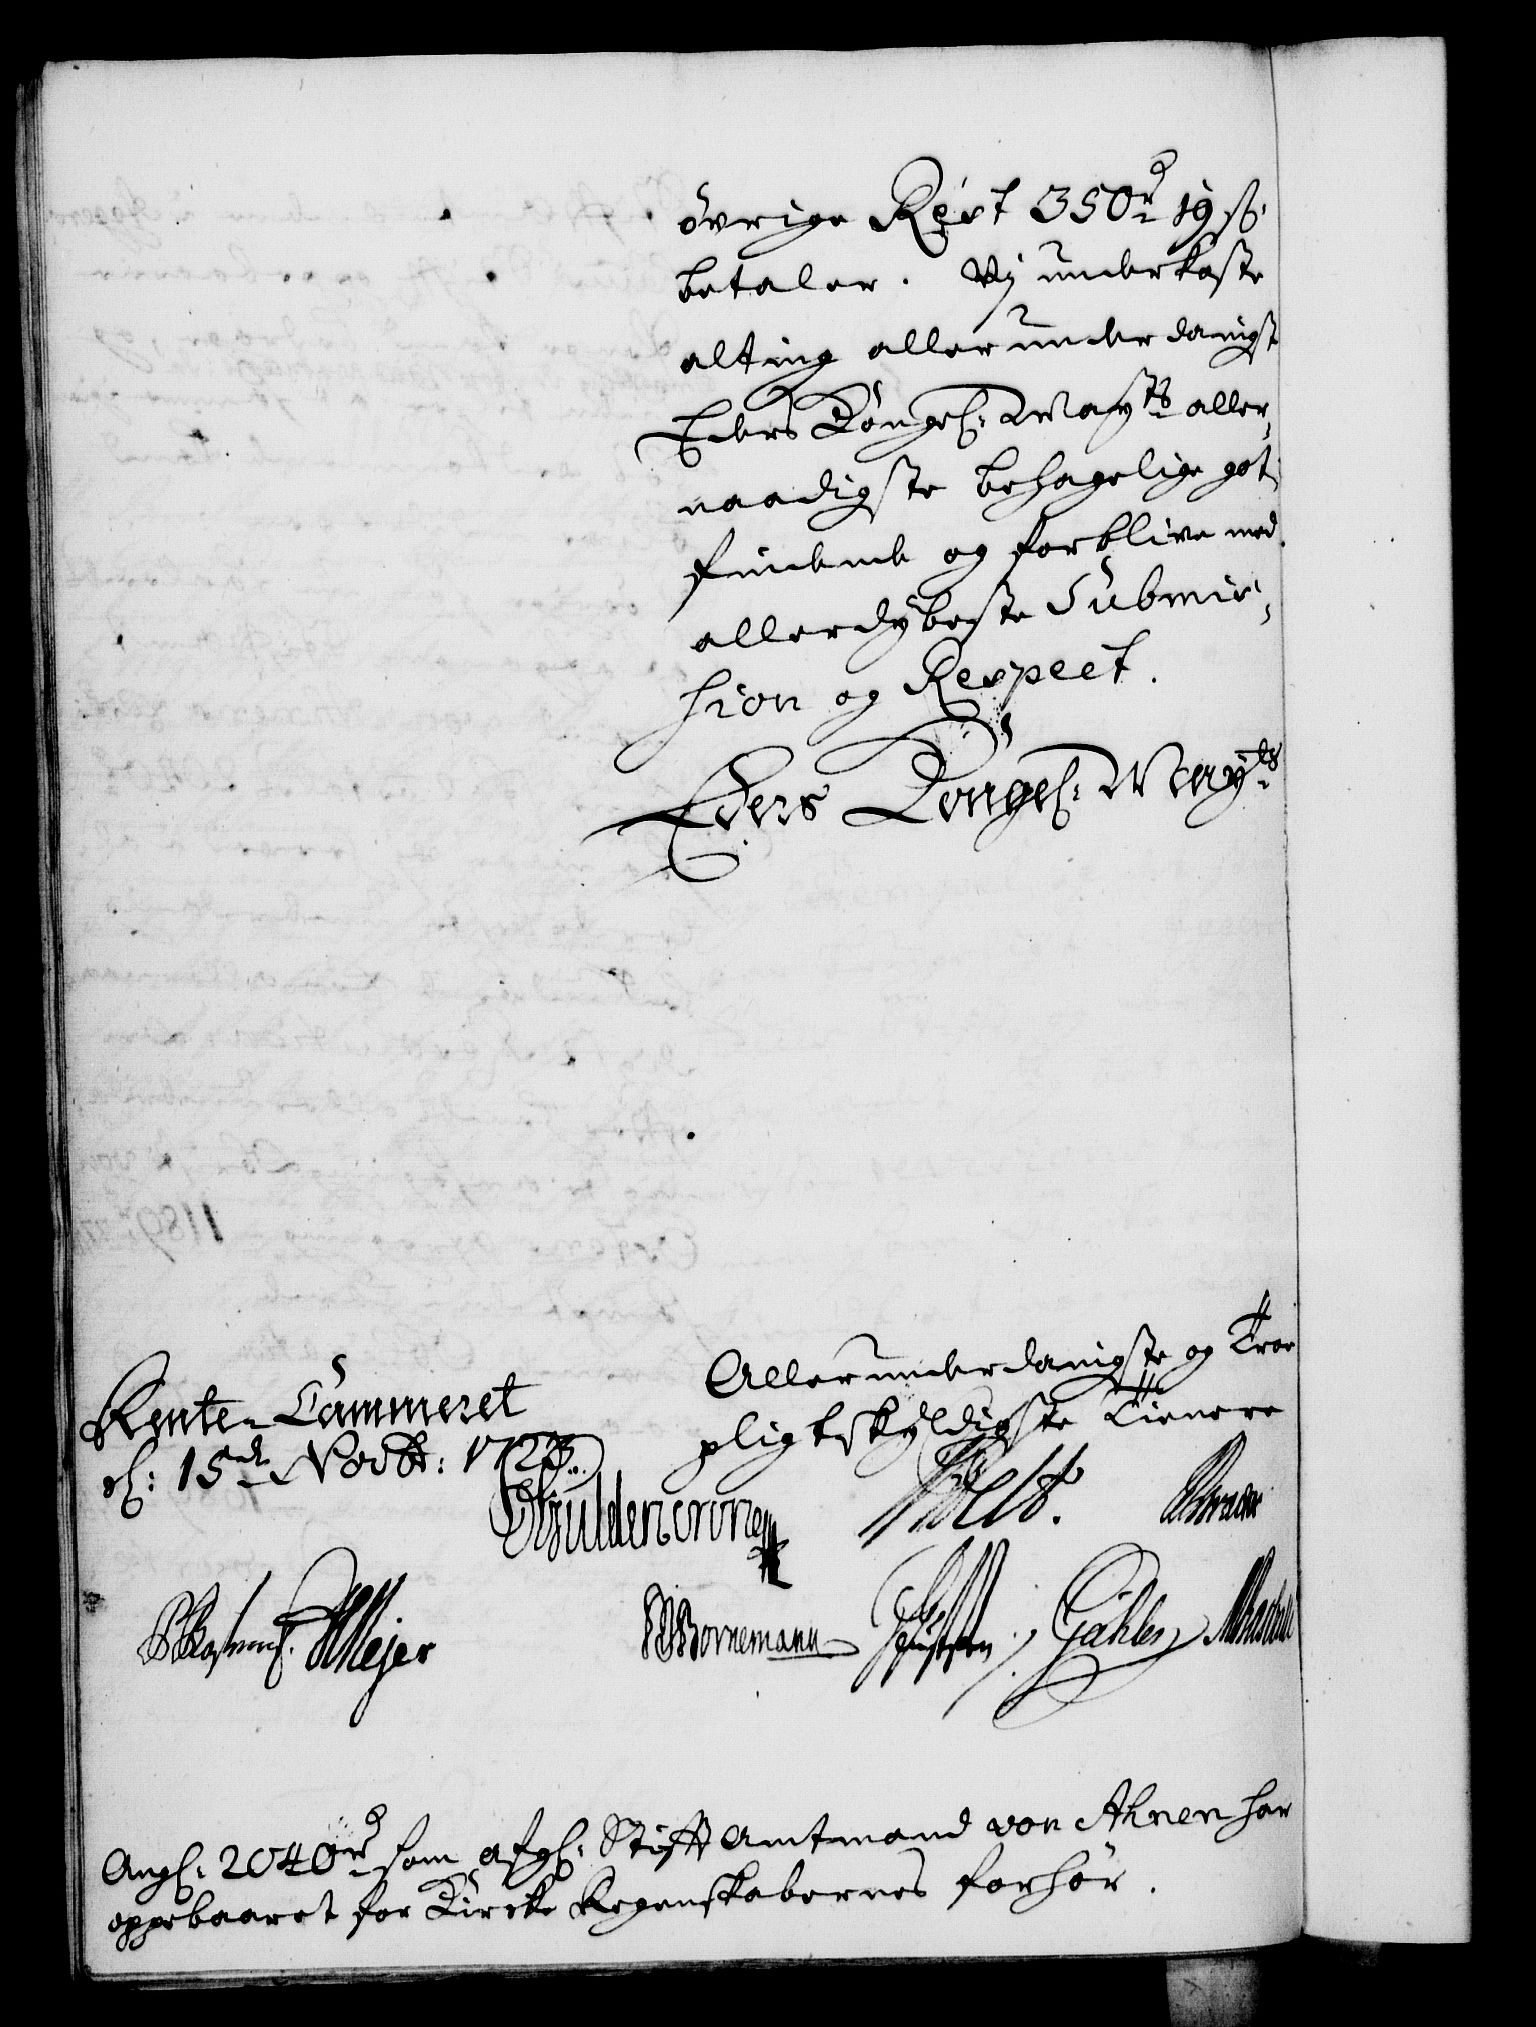 övrige Rest 350rd 19 sk.
betaler. Vi underkaste
alting allerunderdanigst
Eders Kongel: Mayts aller,,
naadigste behagelige got,,
findende og forblive med
allerdybeste Submis,,
sion og Respect.
Eders Kongel: Mayts
Allerunderdanigste og Troe
pligtskyldigste Tienere
Rente-Cammeret
d: 15de Novbr: 1723.
Gyldencrone
P Neve Meyer
Bornemann Gähler
Angl: 2040rd som afgl: Stifft Amtmand von Ahnen har
oppebaaret for Kircke Regenskabernes forhör.